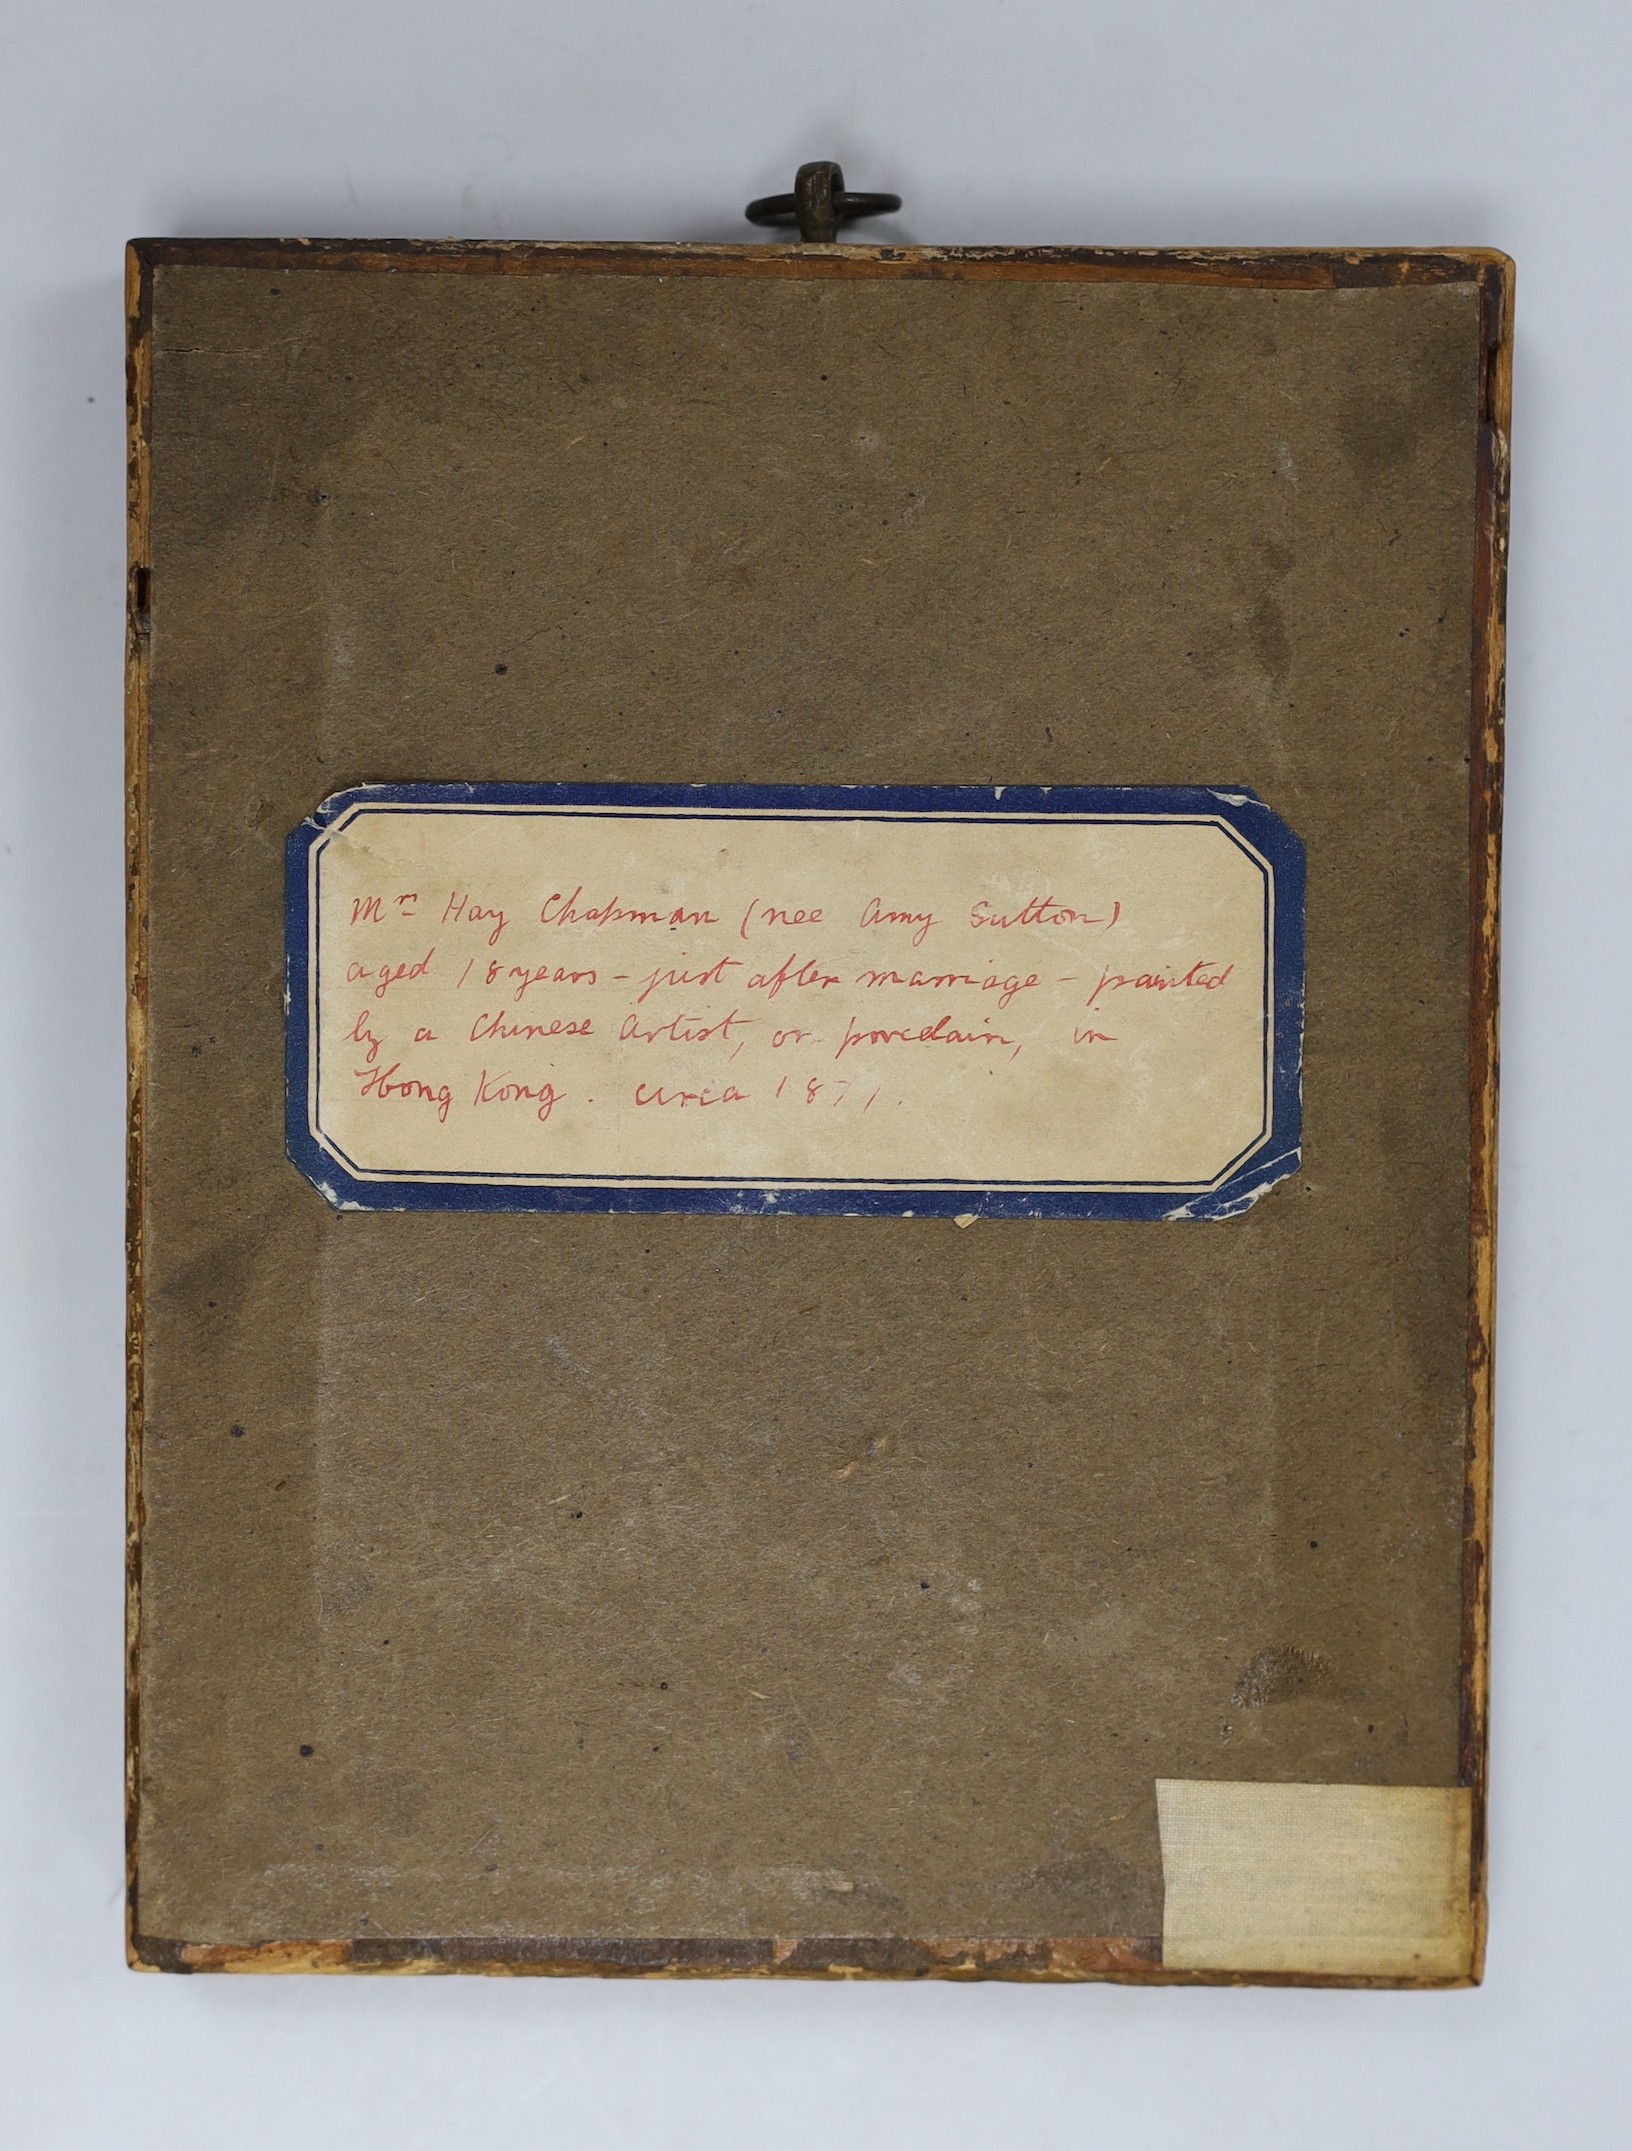 Mrs Hay Chapman (nee Amy Sutton)
aged 18 years - just after marriage - painted
by a Chinese Artist, on porcelain, in
Hong Kong. circa 1871.